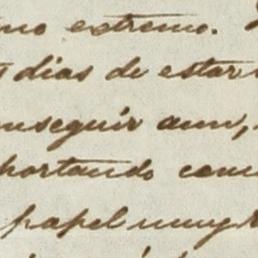 mo extremo.
dias de estar
nseguir aun,
portando com
papel muy